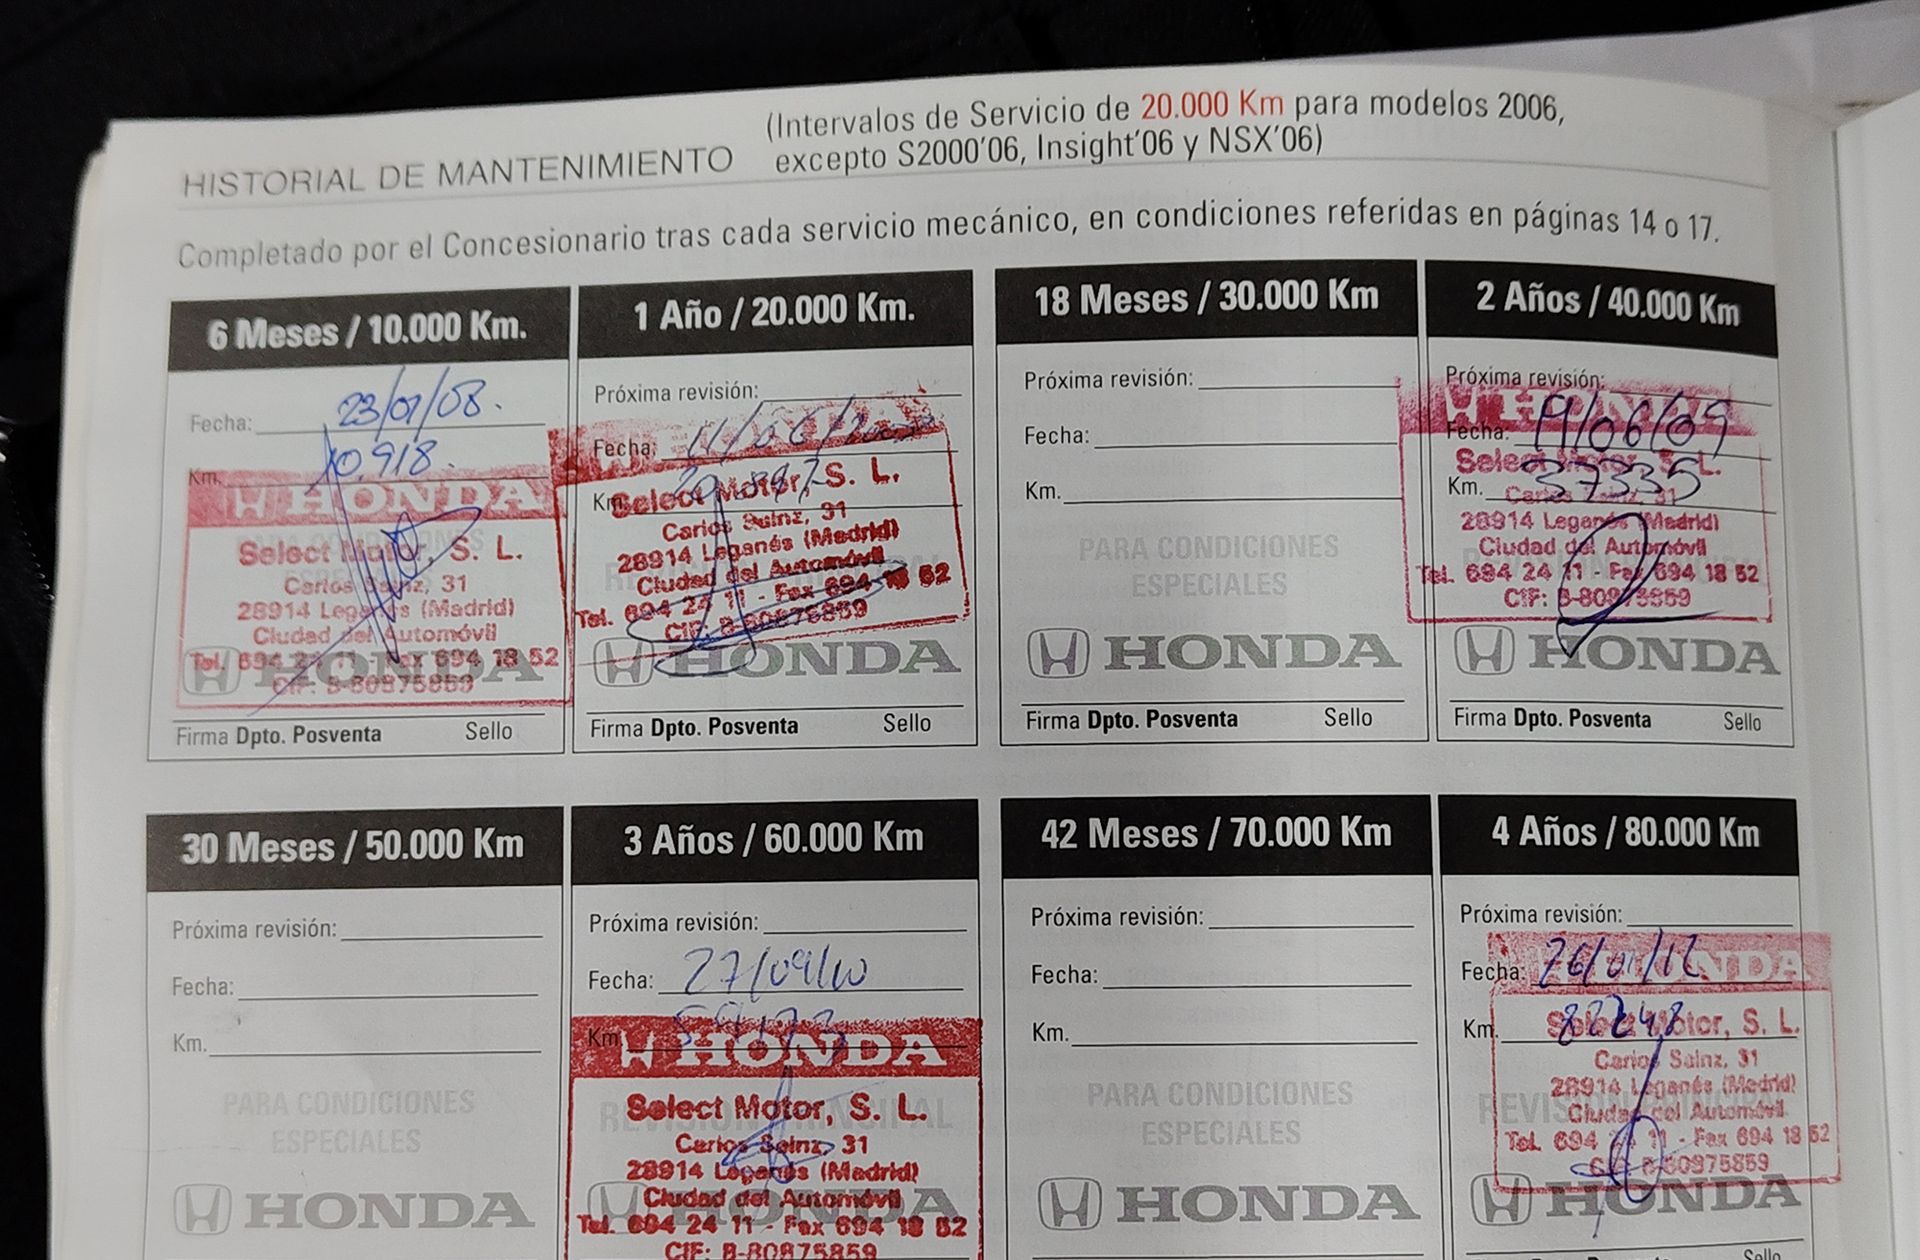 HISTORIAL DE MANTENIMIENTO
(Intervalos de Servicio de 20.000 Km para modelos 2006,
excepto S2000'06, Insight'06 y NSX'06)
Completado por el Concesionario tras cada servicio mecánico, en condiciones referidas en páginas 14 o 17.
6 Meses / 10.000 Km.
Fecha: 23/01/08.
Km. 10.918.
HONDA
Select Motor, S. L.
Carlos Sainz, 31
28914 Leganés (Madrid)
Ciudad del Automóvil
Tel. 694 24 11 - Fax 694 18 52
CIF: B-80975859
HONDA
Firma Dpto. Posventa Sello
1 Año / 20.000 Km.
Próxima revisión:
Fecha: 11/06/
Km.
Select Motor, S. L.
Carlos Sainz, 31
28914 Leganés (Madrid)
Ciudad del Automóvil
Tel. 694 24 11 - Fax 694 18 52
CIF: B-80975859
HONDA
Firma Dpto. Posventa Sello
18 Meses / 30.000 Km
Próxima revisión:
Fecha:
Km.
PARA CONDICIONES
ESPECIALES
HONDA
Firma Dpto. Posventa Sello
2 Años / 40.000 Km
Próxima revisión:
HONDA
Fecha: 19/06/09
Select Motor, S. L.
Km. 37335
Carlos Sainz, 31
28914 Leganés (Madrid)
Ciudad del Automóvil
Tel. 694 24 11 - Fax 694 18 52
CIF: B-80975859
HONDA
Firma Dpto. Posventa Sello
30 Meses / 50.000 Km
Próxima revisión:
Fecha:
Km.
PARA CONDICIONES
ESPECIALES
HONDA
3 Años / 60.000 Km
Próxima revisión:
Fecha: 27/09/10
Km. 59173
HONDA
Select Motor, S. L.
Carlos Sainz, 31
28914 Leganés (Madrid)
Ciudad del Automóvil
HONDA
Tel. 694 24 11 - Fax 694 18 52
CIF: B-80975859
42 Meses / 70.000 Km
Próxima revisión:
Fecha:
Km.
PARA CONDICIONES
ESPECIALES
HONDA
4 Años / 80.000 Km
Próxima revisión:
HONDA
Fecha: 26/01/12
Km. 82248
Select Motor, S. L.
Carlos Sainz, 31
28914 Leganés (Madrid)
REVISIÓN PRINCIPAL
Ciudad del Automóvil
Tel. 694 24 11 - Fax 694 18 52
CIF: B-80975859
HONDA
Dpto. Posventa Sello